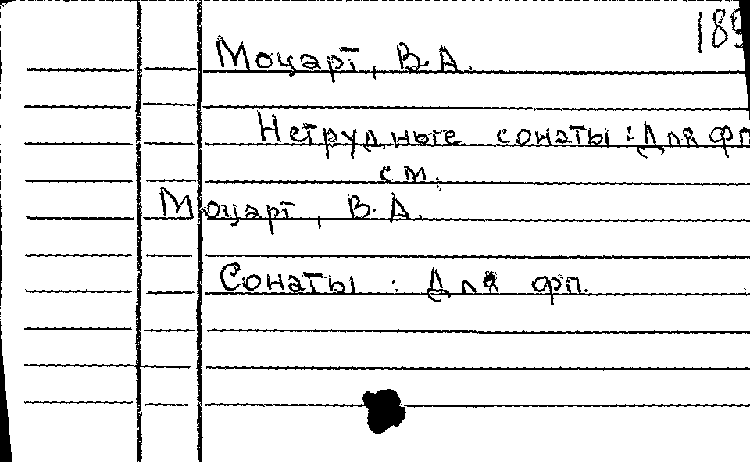 Моцарт, В.А.
Нетрудные сонаты : Для фп
см.
Моцарт, В.А.
Сонаты : Для фп.